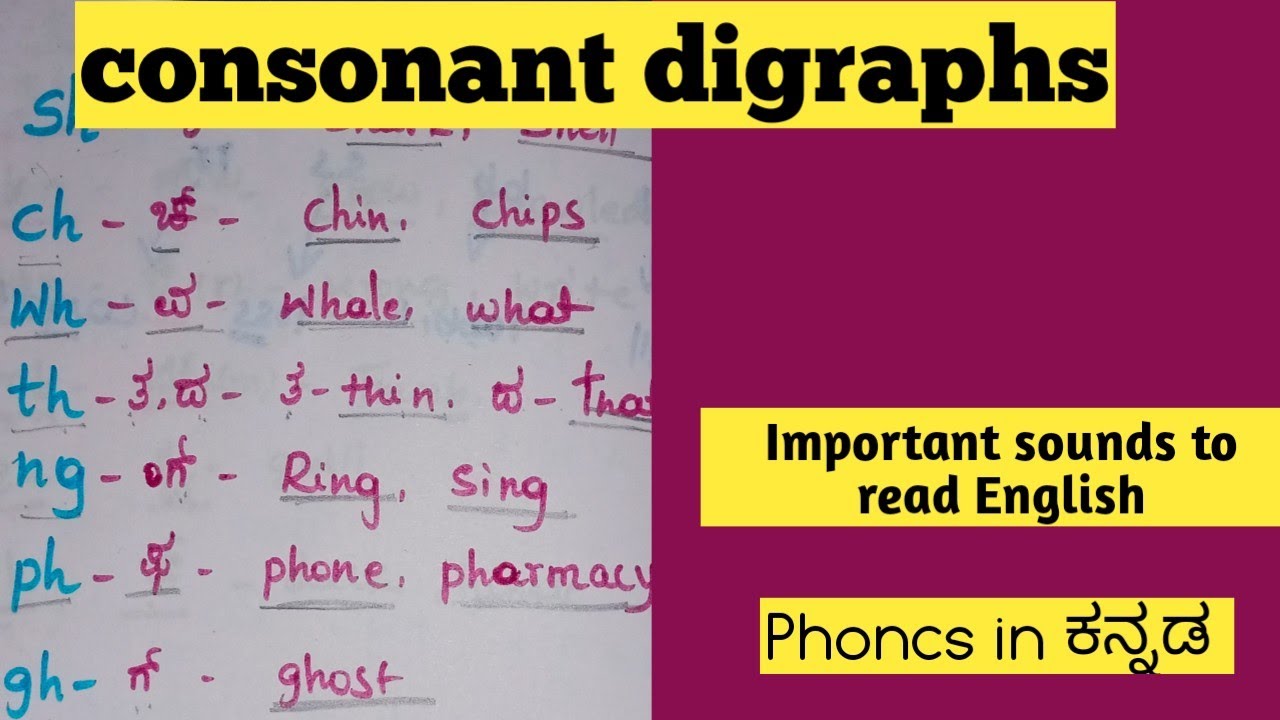 consonant digraphs
sh
shell
ch - ಚ್ - chin, chips
Wh - ವ - Whale, what
th - ತ, ದ - ತ - thin. ದ - that
ng - ಂಗ್ - Ring, sing
ph - ಫ - phone, pharmacy
gh - ಗ್ - ghost
Important sounds to
read English
Phoncs in ಕನ್ನಡ